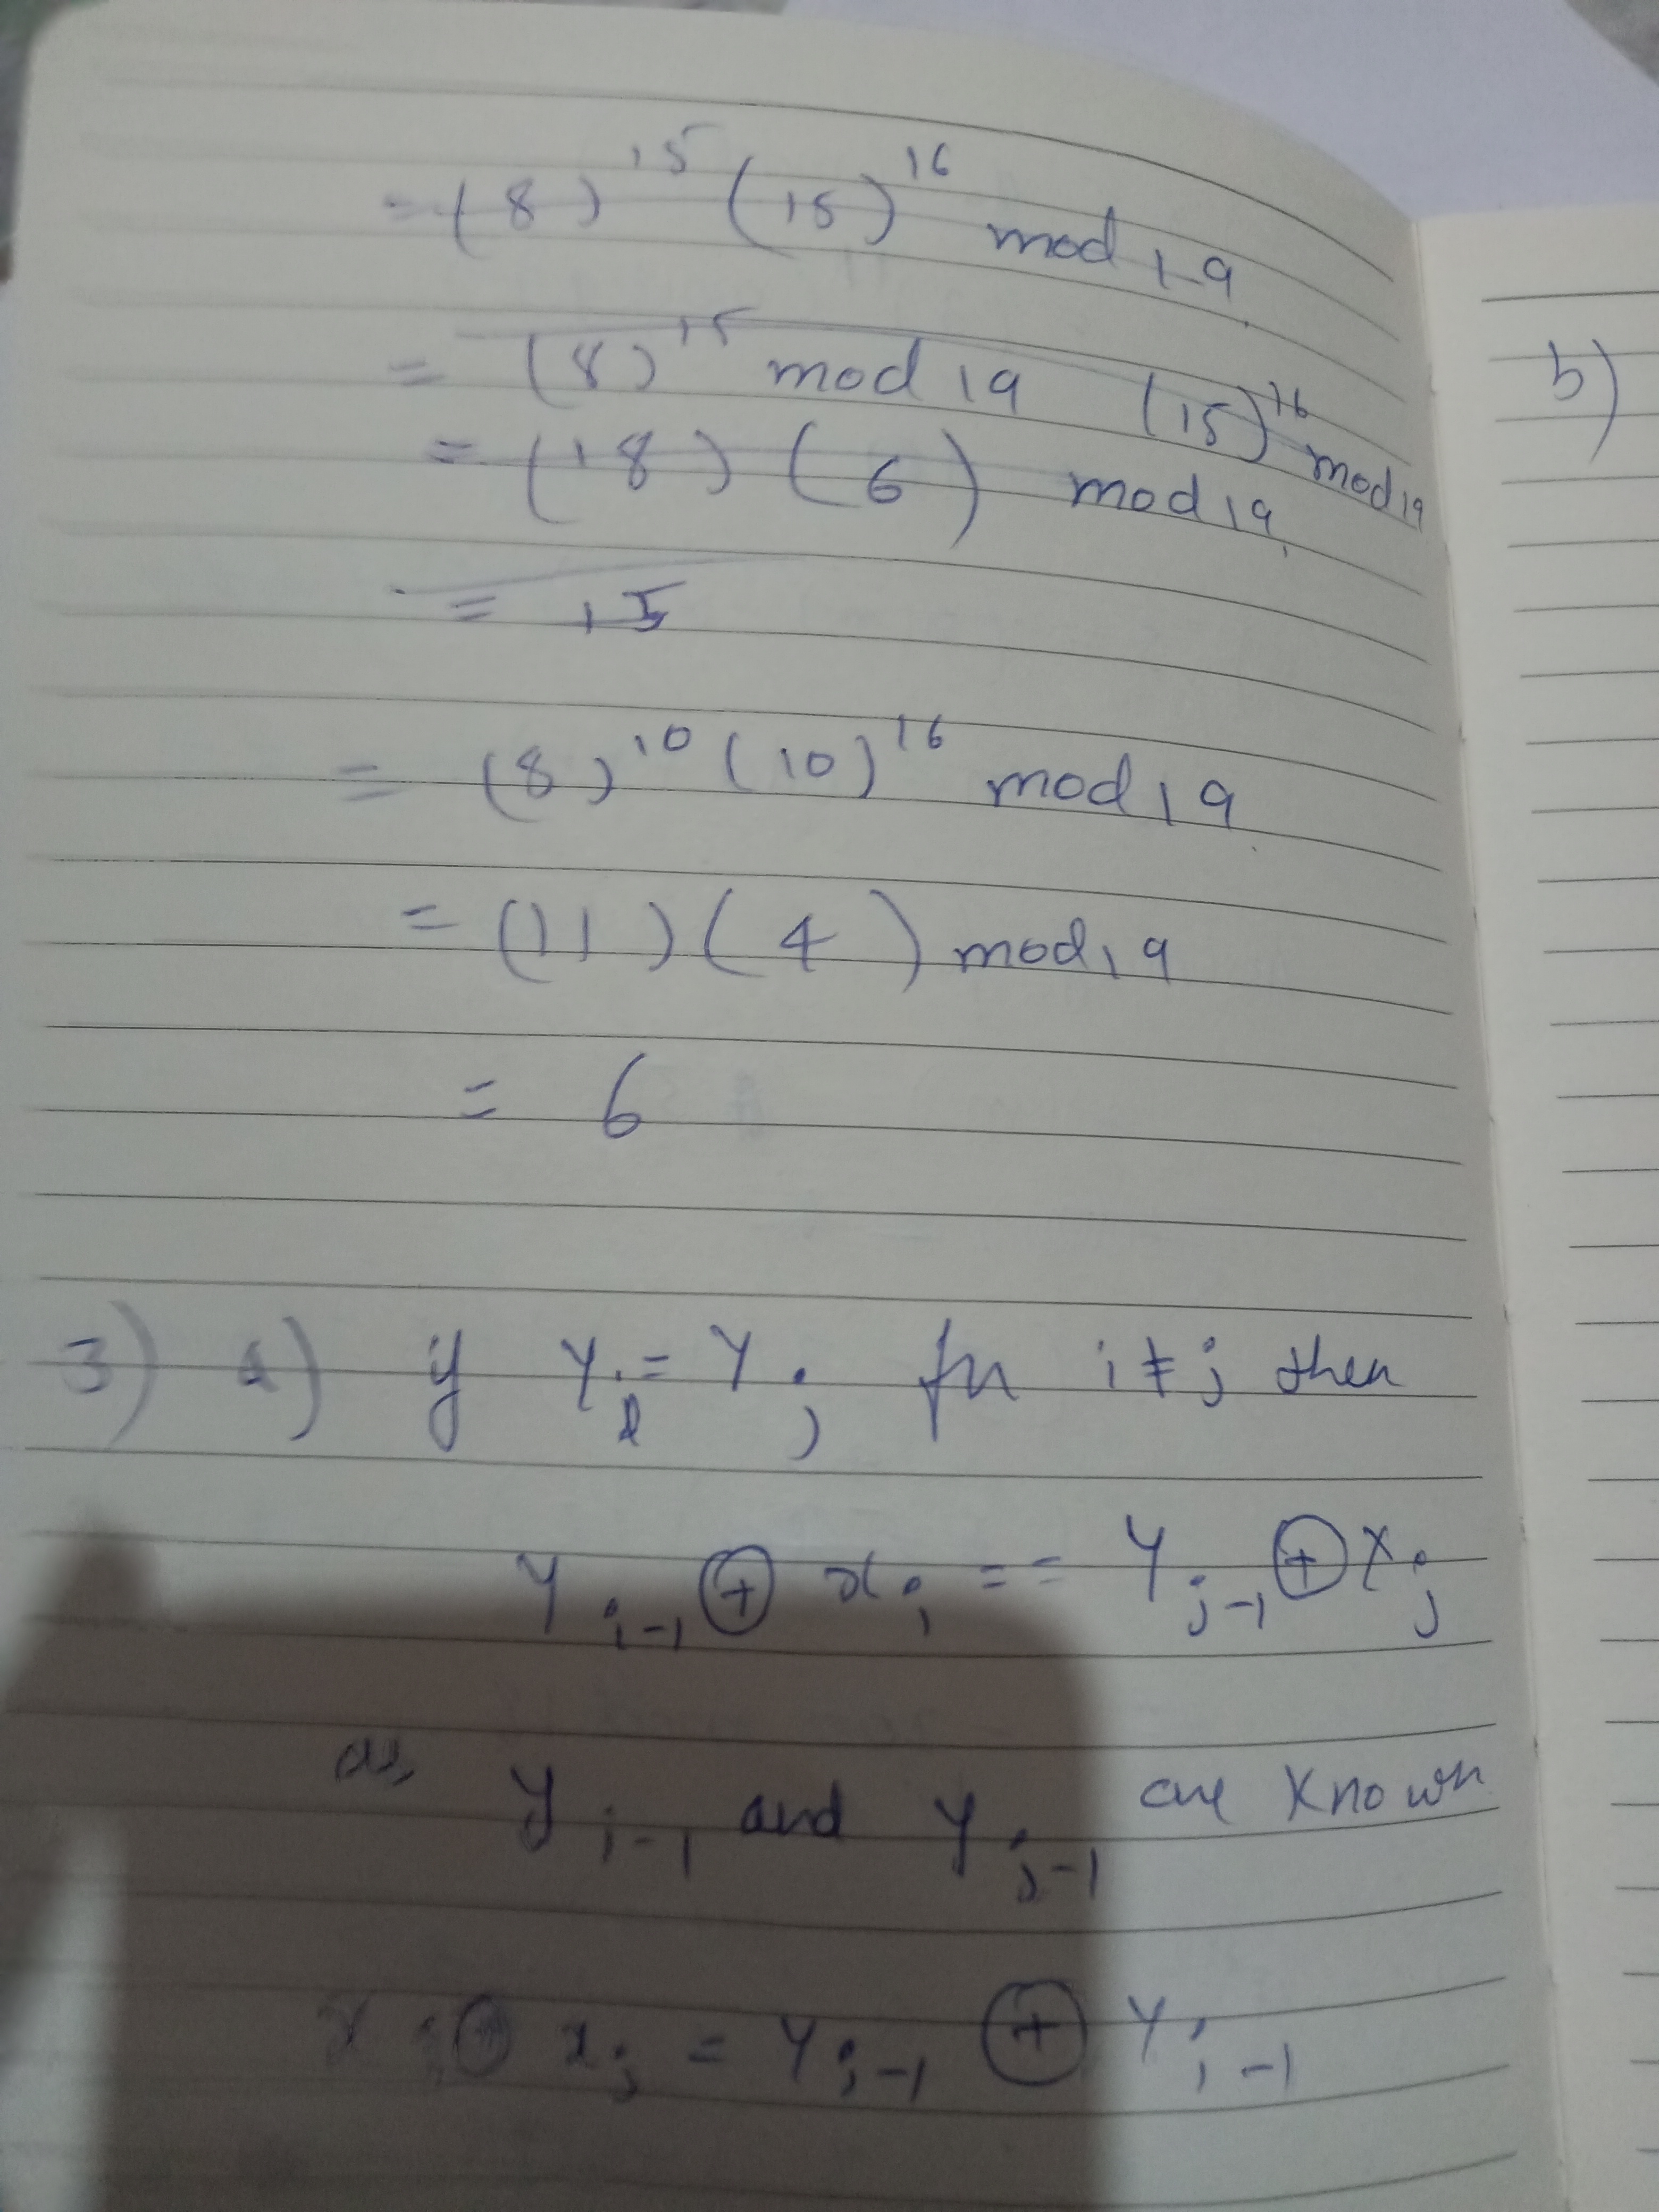 = (8)^15 (15)^16 mod 19
= (8)^15 mod 19 (15)^16 mod 19
= (18) (6) mod 19
= 15
= (8)^10 (10)^16 mod 19
= (11) (4) mod 19
= 6
3) a) if Y_i = Y_j for i ≠ j then
Y_i-1 ⊕ x_i == Y_j-1 ⊕ x_j
as, y_i-1 and y_j-1 are known
x_i ⊕ x_j = Y_j-1 ⊕ Y_i-1
b)